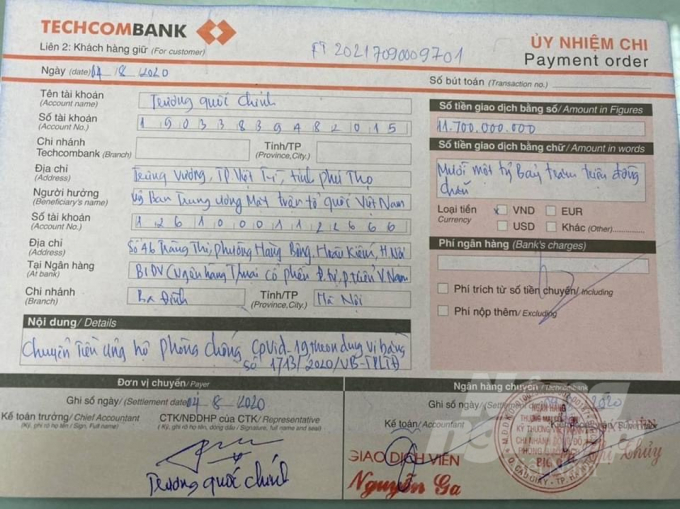 TECHCOMBANK
Liên 2: Khách hàng giữ (For customer)
FT 2021709000 9701
ỦY NHIỆM CHI
Payment order
Ngày (date) 04/8/2020
Số bút toán (Transaction no.)
Tên tài khoản
(Account name)
Trương quốc chính
Số tài khoản
(Account No.)
19033839482015
Chi nhánh
Techcombank (Branch)
Tỉnh/TP
(Province,City.)
Địa chỉ
(Address)
Trưng Vương, TP Việt Trì, tỉnh phú Thọ
Người hưởng
(Beneficiary's name)
Uỷ Ban Trung ương Mặt trận tổ quốc Việt Nam
Số tài khoản
(Account No.)
12610001122666
Địa chỉ
(Address)
Số 46 Tràng Thi, phường Hàng Bông, Hoàn Kiếm, H Nội
Tại Ngân hàng
(At bank)
BIDV (Ngân hàng T/mại cổ phần Đ.tư, p.triển V Nam
Chi nhánh
(Branch)
Ba Đình
Tỉnh/TP
(Province,City.)
Hà Nội
Số tiền giao dịch bằng số/ Amount in Figures
11.700.000.000
Số tiền giao dịch bằng chữ/ Amount in words
Mười một tỷ Bảy trăm triệu đồng
chẵn
Loại tiền
Currency
x VND
EUR
USD
Khác (Other)
Phí ngân hàng (Bank's charges)
Phí trích từ số tiền chuyển/ Including
Phí nộp thêm/ Excluding
Nội dung/ Details
Chuyển Tiền ủng hộ phòng chống Covid-19 theo
số 1713/2020/VB-TPLTĐ
Đơn vị chuyển/ Payer
Ghi sổ ngày/ (Settlement date) 04/8/2020
Kế toán trưởng/ Chief Accountant
(Ký, ghi rõ họ tên / Sign, Full name)
CTK/NĐDHP của CTK/ Representative
(Ký, ghi rõ họ tên, đóng dấu / Signature, full name and seal)
Trương quốc chính
Ngân hàng chuyển/
Ghi sổ ngày/ (Settlement 2020
Kế toán/ Accountant
GIAO DỊCH VIÊN
Nguyễn Ga
NGÂN HÀNG
THƯƠNG MẠI
KỸ THƯƠNG
CHI NHÁNH
Q. CẦU GIẤY - TP.
Thủy